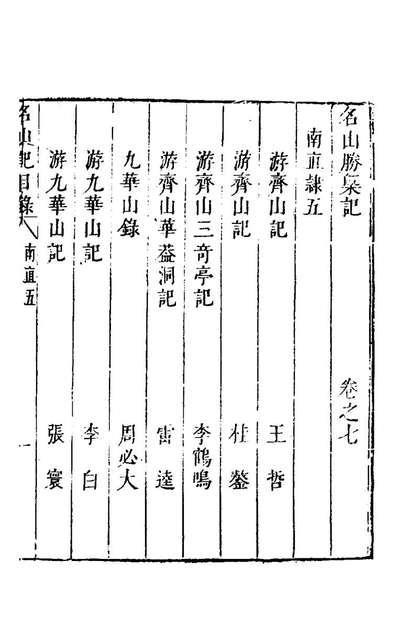 名山勝槩記 卷之七
南直隸五
游齊山記 王哲
游齊山記 杜鏊
游齊山三奇亭記 李鶴鳴
游齊山華葢洞記 雷逵
九華山錄 周必大
游九華山記 李白
游九華山記 張寰
名山記目錄 南直五 一